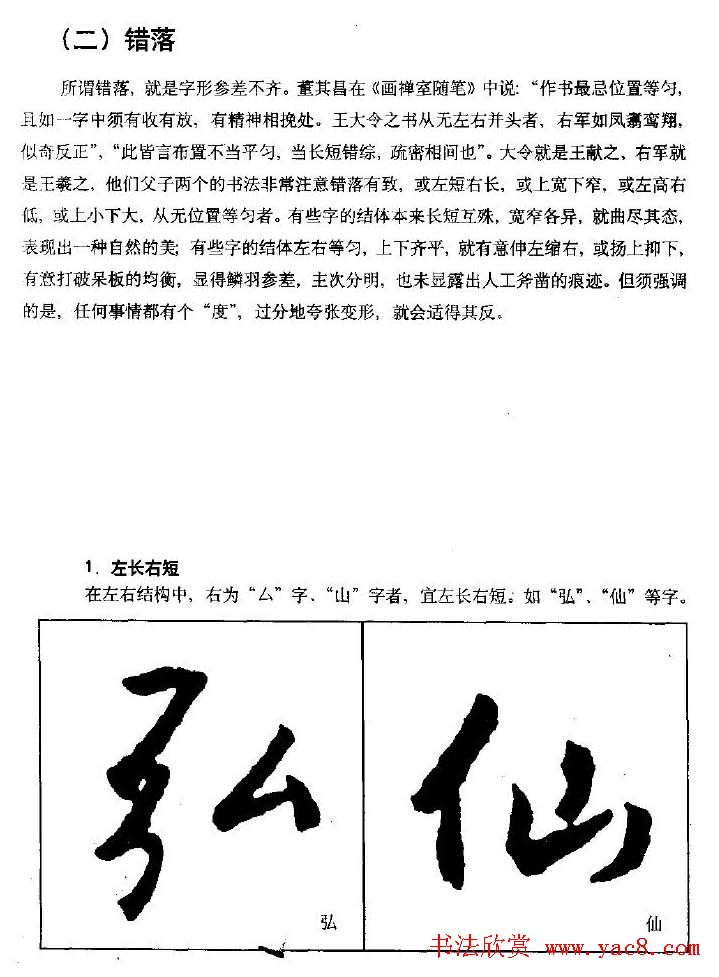 （二）错落
所谓错落，就是字形参差不齐。董其昌在《画禅室随笔》中说：“作书最忌位置等匀，
且如一字中须有收有放，有精神相挽处。王大令之书从无左右并头者，右军如凤翥鸾翔，
似奇反正”，“此皆言布置不当平匀，当长短错综，疏密相间也”。大令就是王献之，右军就
是王羲之，他们父子两个的书法非常注意错落有致，或左短右长，或上宽下窄，或左高右
低，或上小下大，从无位置等匀者。有些字的结体本来长短互殊，宽窄各异，就曲尽其态，
表现出一种自然的美；有些字的结体左右等匀，上下齐平，就有意伸左缩右，或扬上抑下，
有意打破呆板的均衡，显得鳞羽参差，主次分明，也未显露出人工斧凿的痕迹。但须强调
的是，任何事情都有个“度”，过分地夸张变形，就会适得其反。
1．左长右短
在左右结构中，右为“厶”字、“山”字者，宜左长右短。如“弘”、“仙”等字。
弘 仙
弘 仙
书法欣赏 www.yac8.com